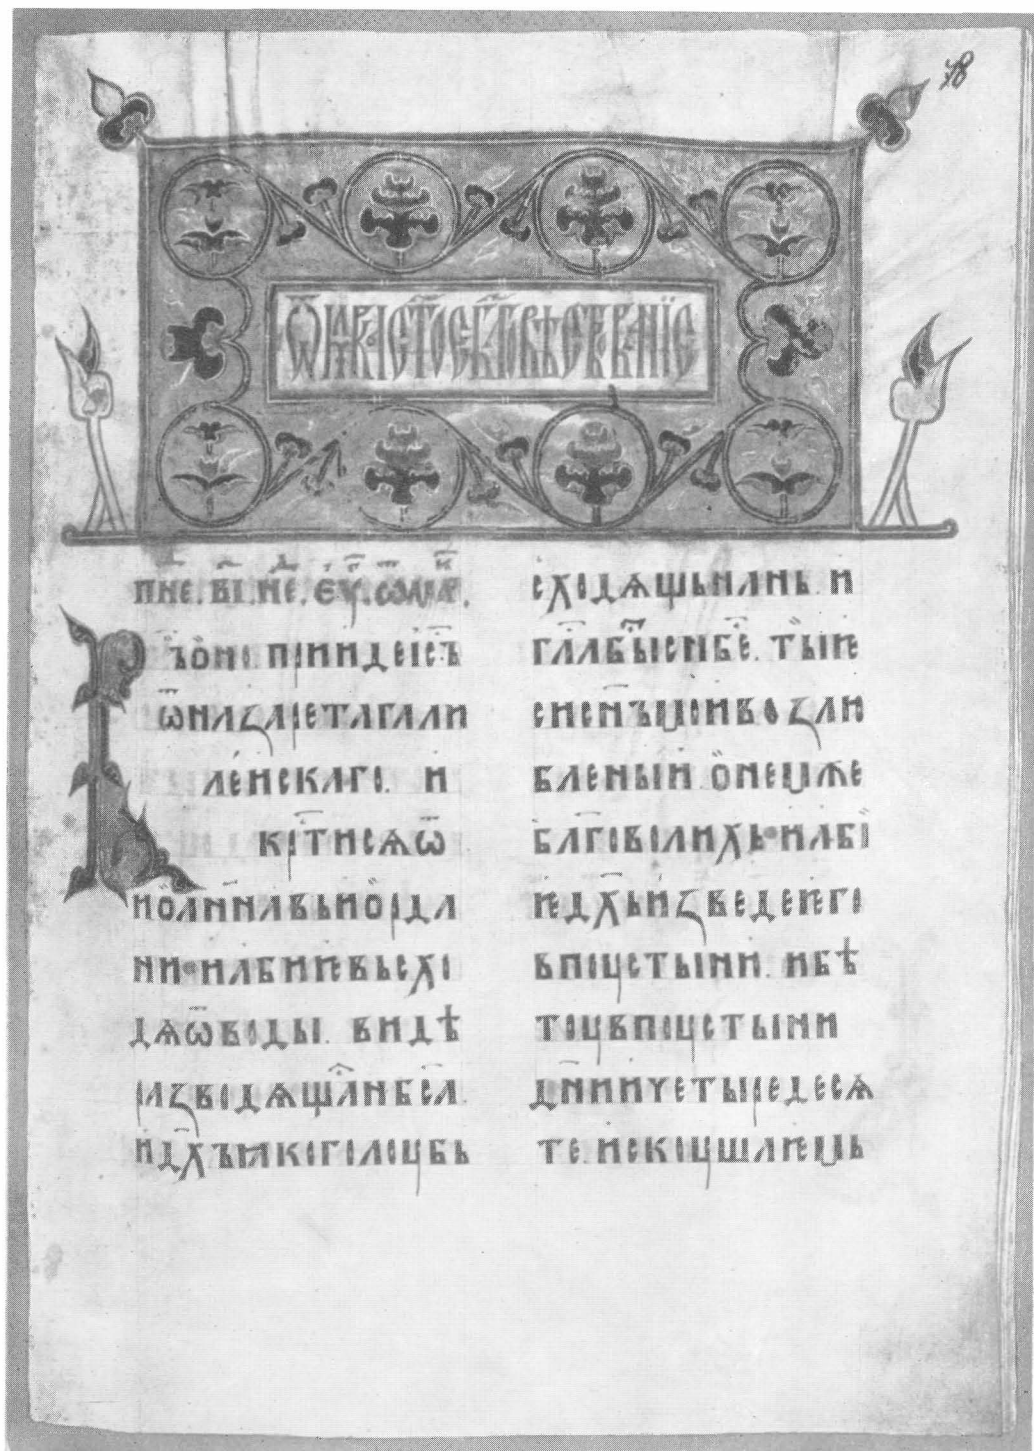 78
ѿ марка ст҃ое бл҃говѣствованїе
пн҃е. в҃і. нд҃е. єѵ҃г. ѿ мар҃.
въ ѻно. прииде іс҃ъ
ѿ назарета гали
лейскаго. и
крт҃исѧ ѿ
иѻан҃на въ иѻрда
ни • и абиѥ въсхо
дѧ ѿ воды. видѣ
разводѧща нб҃са.
и дх҃ъ ꙗко голоубь
сходѧщь на нь. и
гла҃ бы҃ с нб҃се. ты ѥ
си сн҃ъ мои возлю
бленыи. ѻ немже
бла҃говолихъ • и абі
ѥ дх҃ъ изведе ѥго
в поустыни. и бѣ
тоу в поустыни
дн҃ии четыредесѧ
те. искоушаѥмь